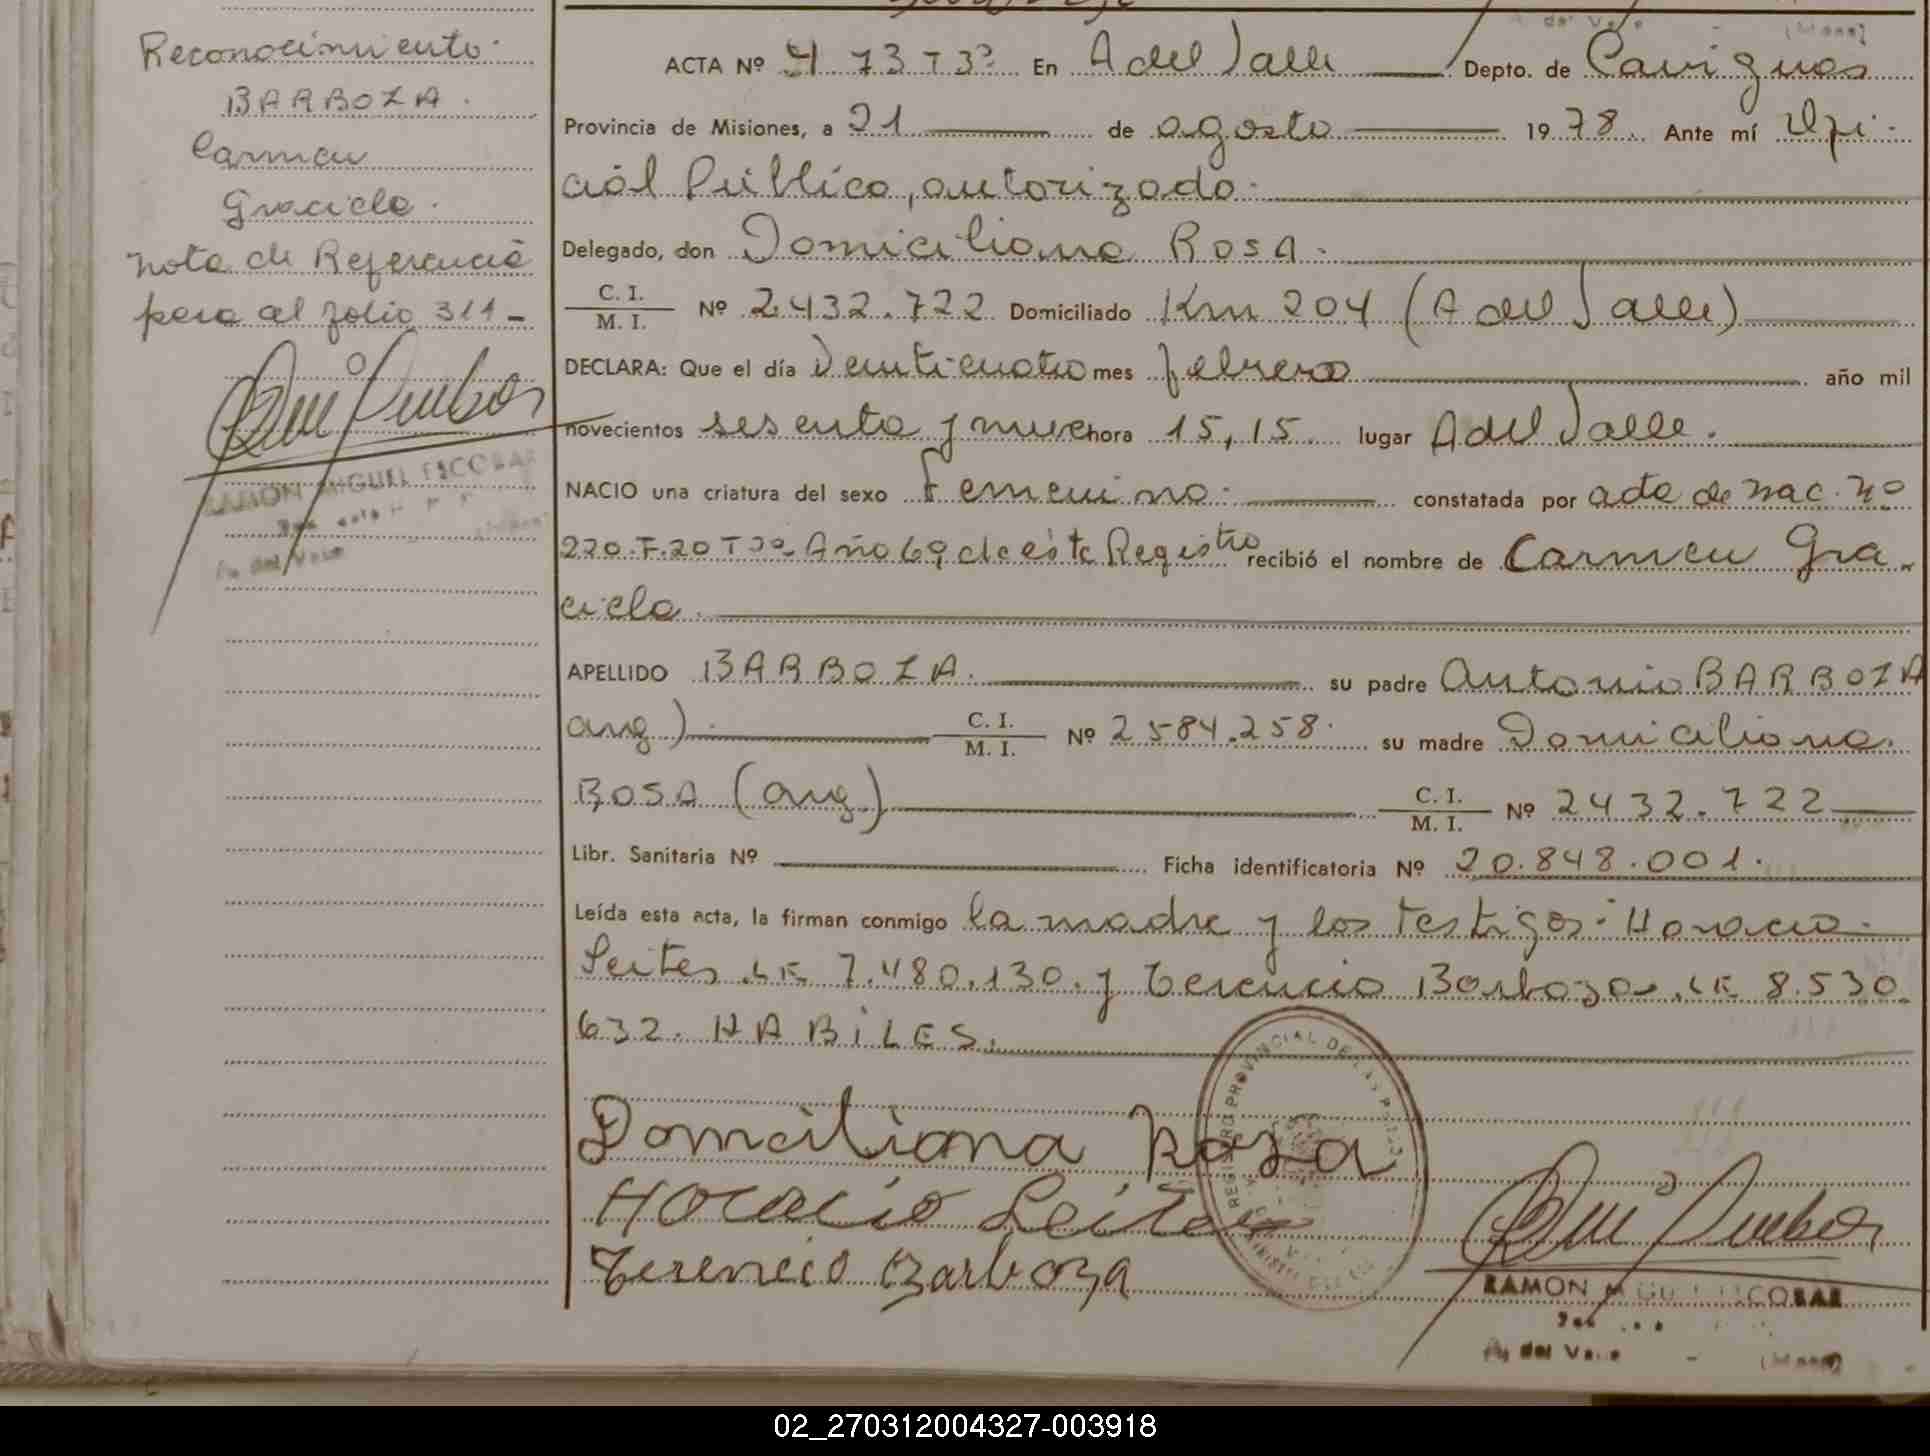 Reconocimiento.
BARBOZA.
Carmen
Graciela.
nota de Referencia
pasa al folio 311 -
RAMON MIGUEL ESCOBAR
ACTA Nº 473 T 3º En A del Valle Depto. de Cainguas
Provincia de Misiones, a 21 de agosto 1978. Ante mí Ofi-
cial Público, autorizado.
Delegado, don Domiciliana ROSA.
C. I.
M. I. Nº 2.432.722 Domiciliado Km 204 (A del Valle)
DECLARA: Que el día Veinticuatro mes febrero año mil
novecientos sesenta y nueve hora 15,15. lugar A del Valle.
NACIO una criatura del sexo Femenino. constatada por acta de nac. nº
220. F. 20 Tº Año 69, de este Registro recibió el nombre de Carmen Gra-
ciela.
APELLIDO BARBOZA. su padre Antonio BARBOZA
arg). C. I.
M. I. Nº 2584.258. su madre Domiciliana.
ROSA (arg) C. I.
M. I. Nº 2432.722
Libr. Sanitaria Nº Ficha identificatoria Nº 20.848.001.
Leída esta acta, la firman conmigo la madre y los testigos: Horacio.
Leites. LE 7.480.130. y Terencio Barboza. LE 8.530.
632. HABILES.
REGISTRO PROVINCIAL DE LAS
Domciliana Roza
Horacio Leites
Terencio Barboza
RAMON MIGUEL ESCOBAR
A. del Valle (Mnes)
02_270312004327-003918